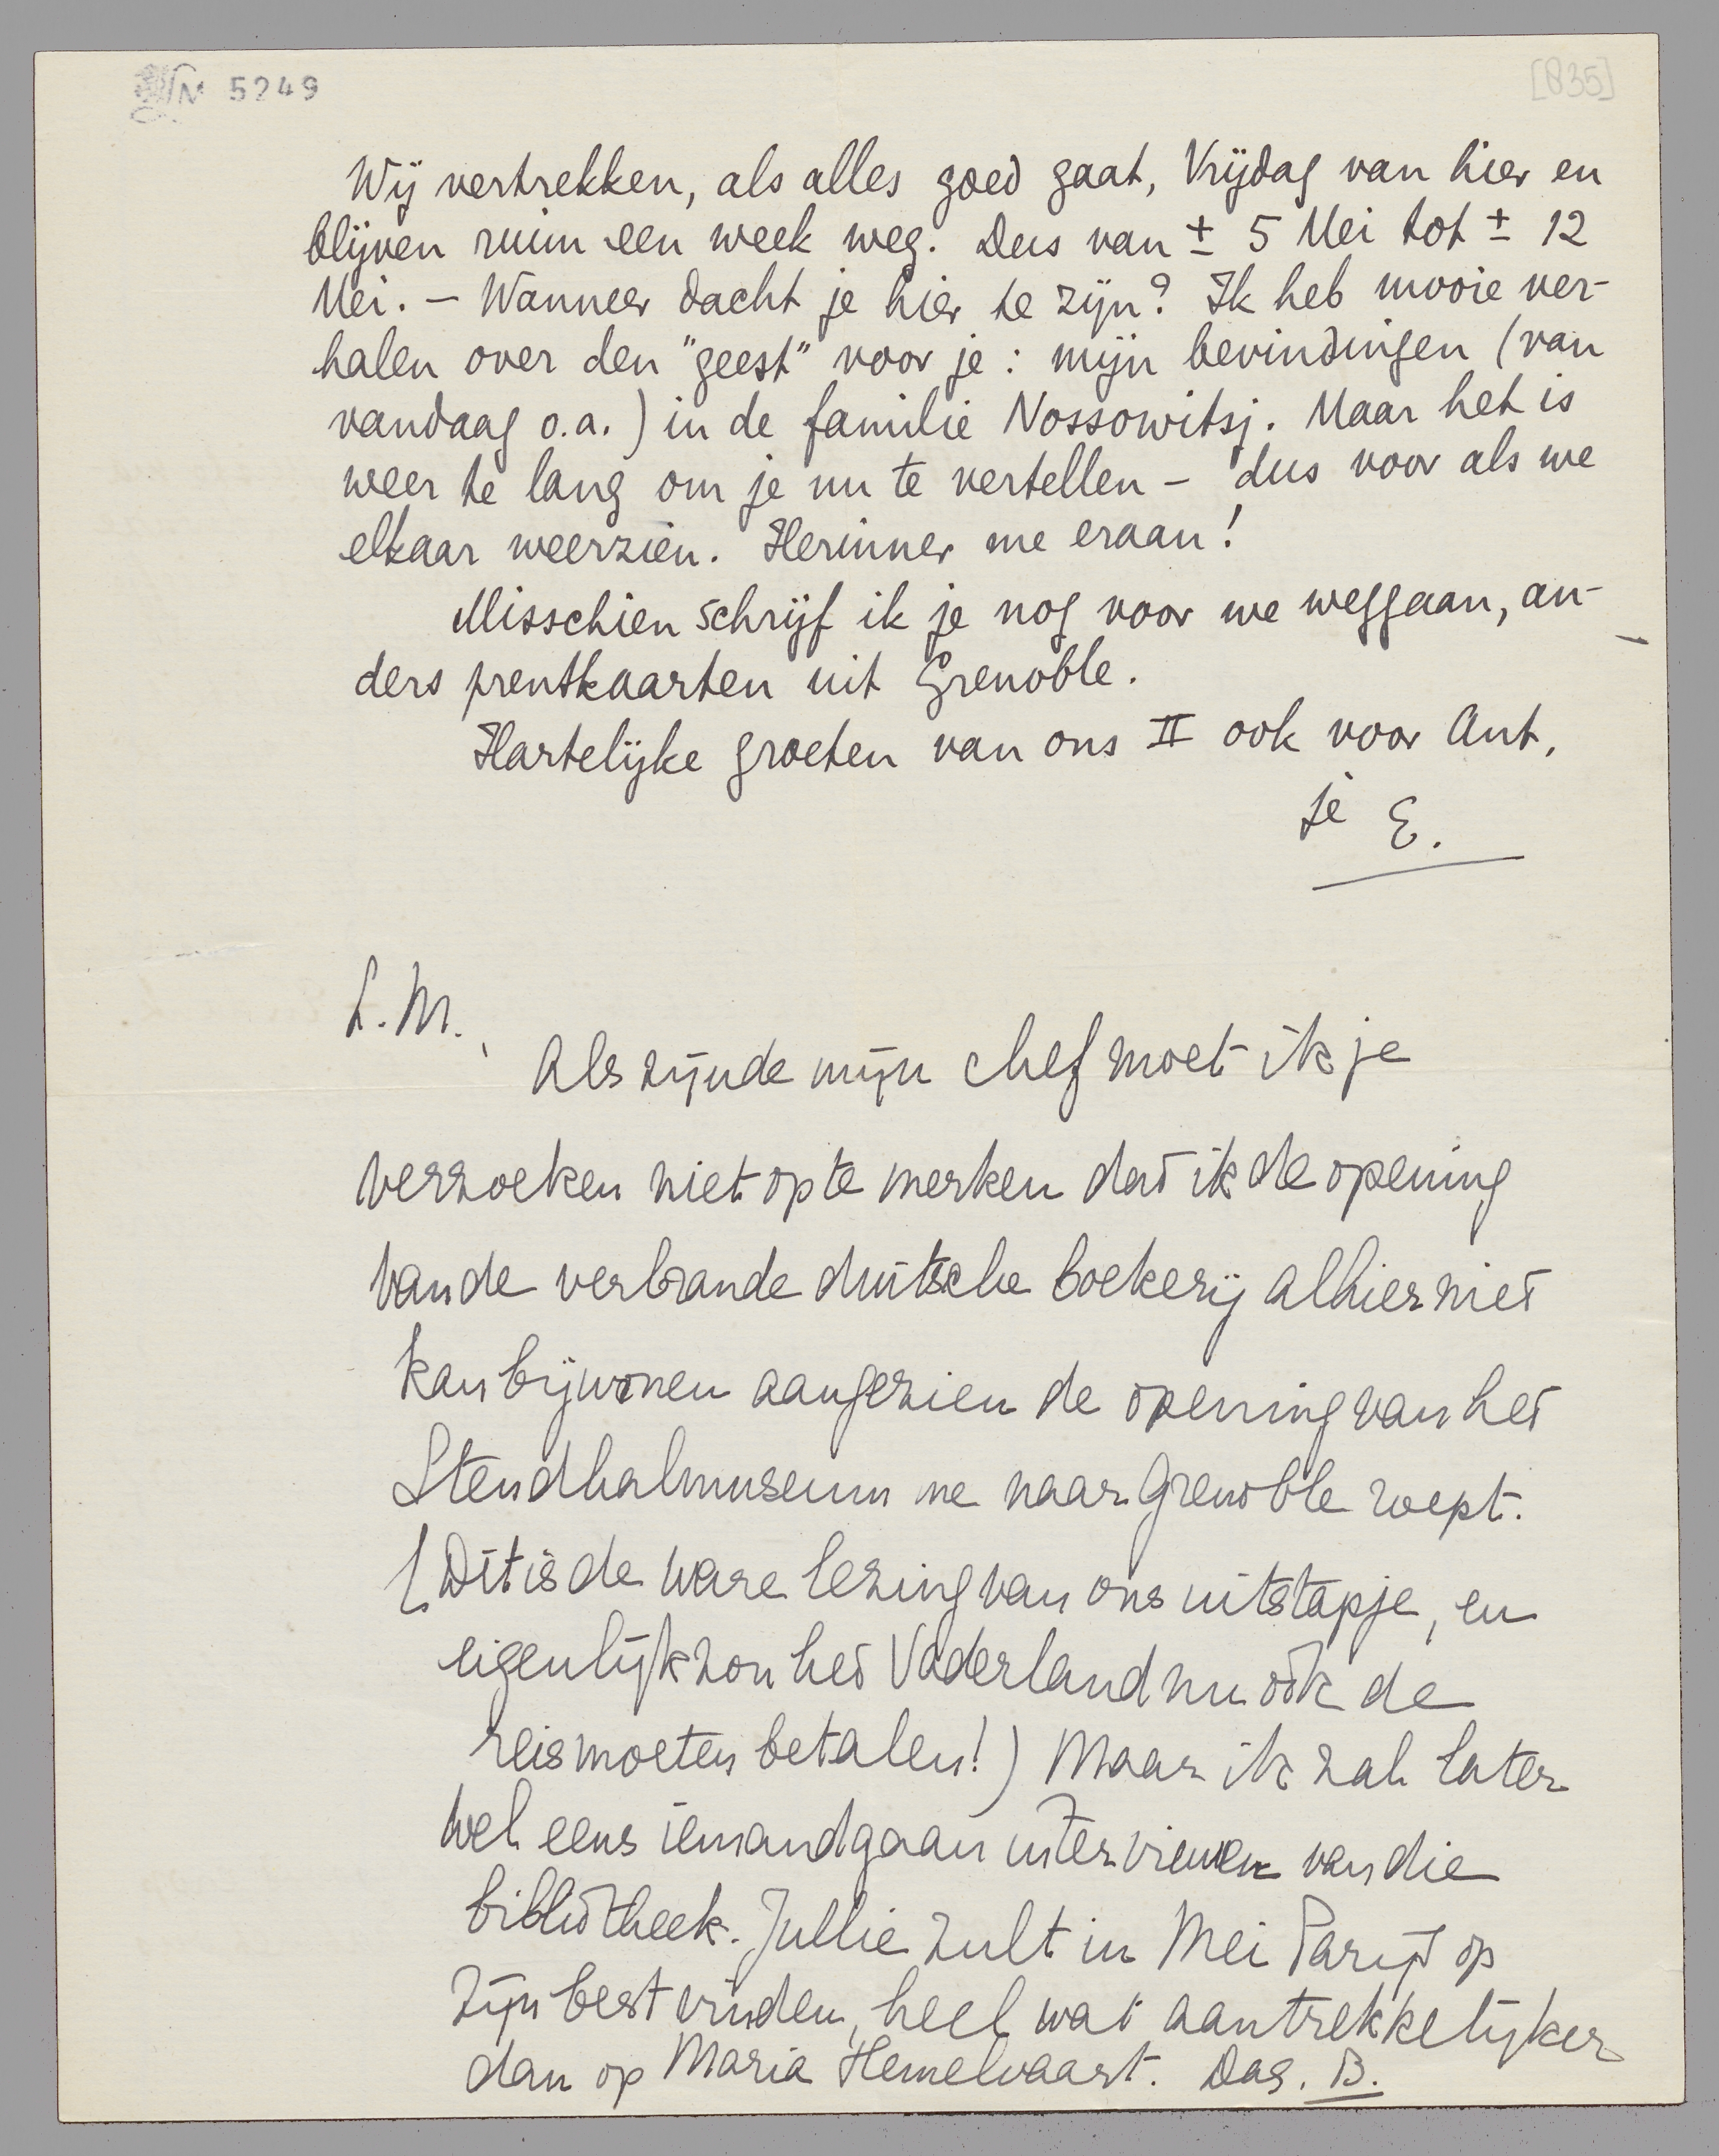 M 5249
[835]
Wij vertrekken, als alles goed gaat, Vrijdag van hier en
blijven ruim een week weg. Dus van ± 5 Mei tot ± 12
Mei. – Wanneer dacht je hier te zijn? Ik heb mooie ver-
halen over den "geest" voor je: mijn bevindingen (van
vandaag o.a.) in de familie Nossowitsj. Maar het is
weer te lang om je nu te vertellen – dus voor als we
elkaar weerzien. Herinner me eraan!
Misschien schrijf ik je nog voor we weggaan, an-
ders prentkaarten uit Grenoble.
Hartelijke groeten van ons II ook voor Ant,
je E.
L.M.,
Als zijnde mijn chef moet ik je
verzoeken niet op te merken dat ik de opening
van de verbrande duitsche boekerij alhier niet
kan bijwonen aangezien de opening van het
Stendhalmuseum me naar Grenoble roept.
(Dit is de ware lezing van ons uitstapje, en
eigenlijk zou het Vaderland nu ook de
reis moeten betalen!) Maar ik zal later
wel eens iemand gaan interviewen van die
bibliotheek. Jullie zult in Mei Parijs op
zijn best vinden, heel wat aantrekkelijker
dan op Maria Hemelvaart. Dag. B.